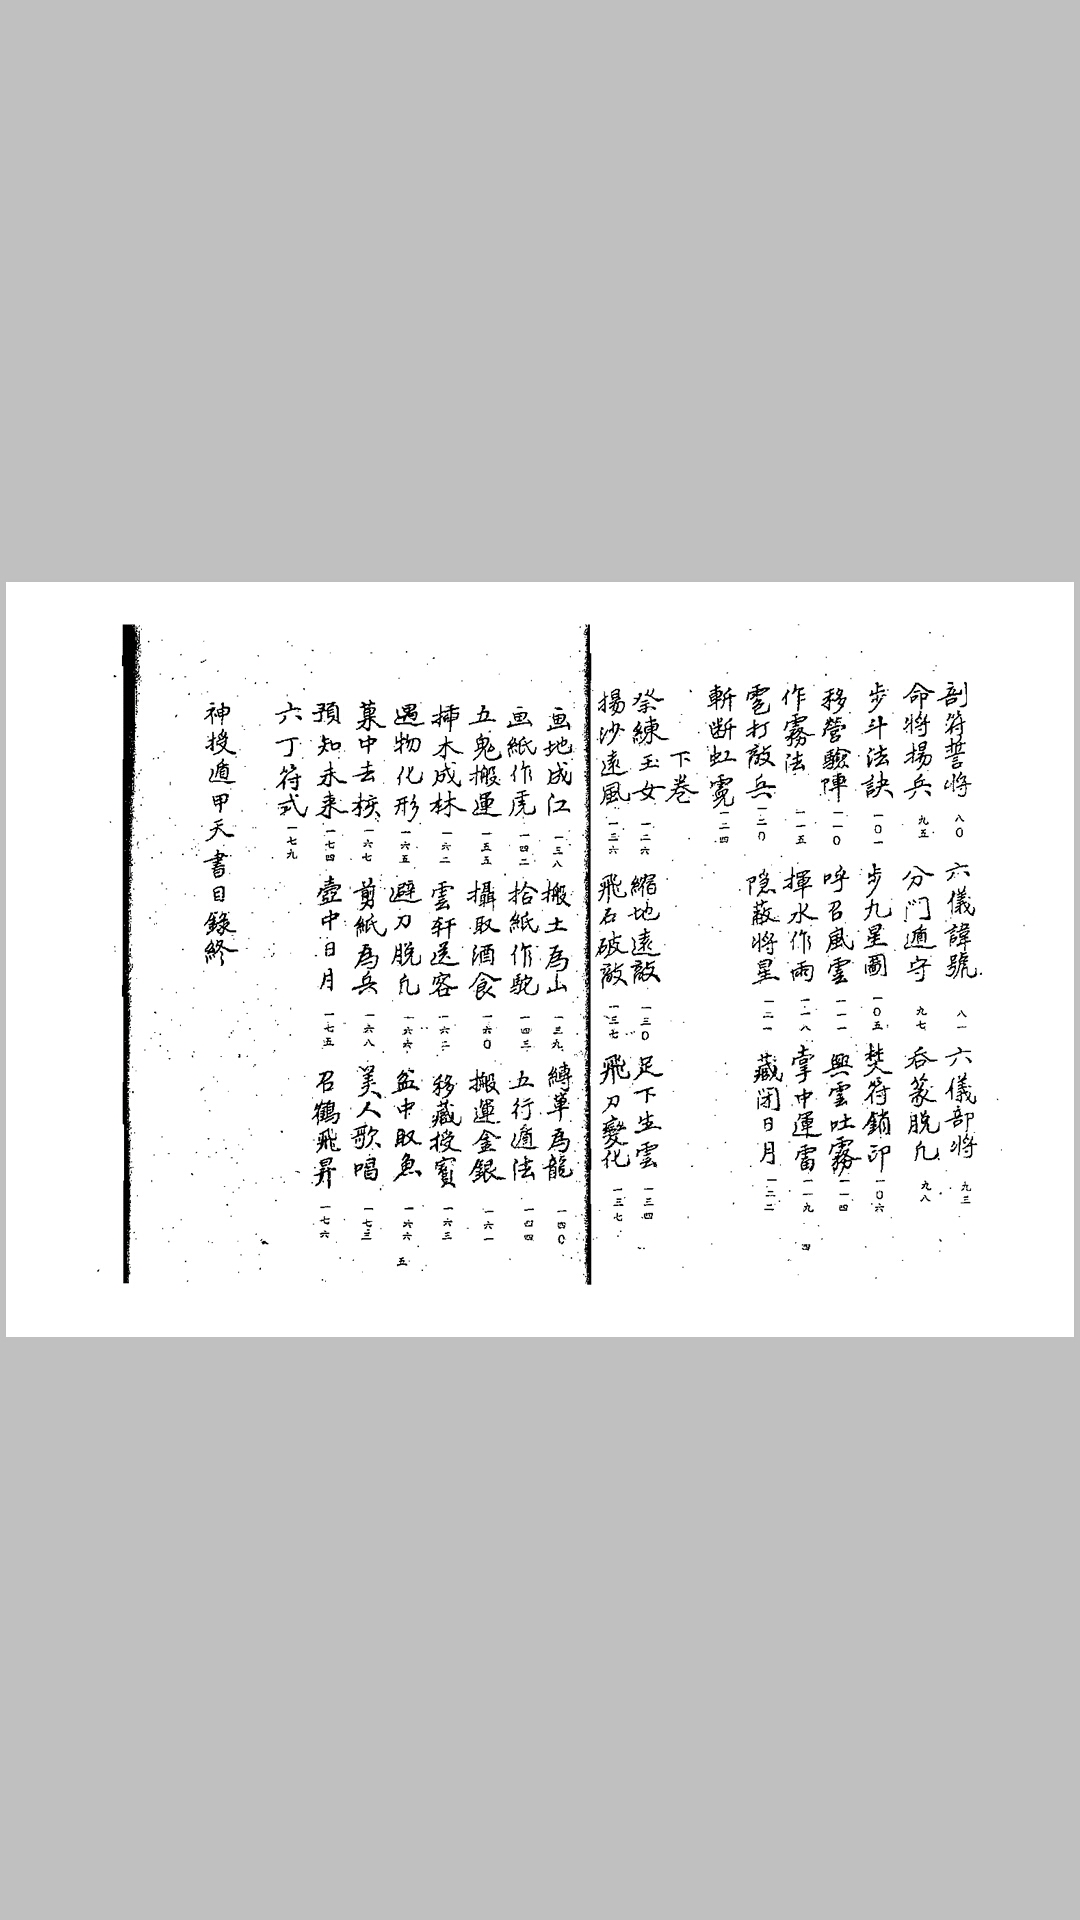 剖符誓將 八〇 六儀諱號 八一 六儀部將 九三
命將揚兵 九五 分门遁守 九七 吞篆脱凡 九八
步斗法訣 一〇一 步九星圖 一〇五 焚符鎖印 一〇六
移營驗陣 一一〇 呼召風雲 一一一 興雲吐霧 一一四
作霧法 一一五 揮水作雨 一一八 掌中運雷 一一九
雹打敵兵 一二〇 隐蔽將星 一二一 藏闭日月 一二二
斬断虹霓 一二四
四
下卷
祭練玉女 一二六 縮地遠敵 一三〇 足下生雲 一三四
揚沙遠風 一三六 飛石破敵 一三七 飛刀變化 一三七
画地成江 一三八 搬土為山 一三九 縛草為龍 一四〇
画紙作虎 一四二 拾紙作駝 一四三 五行遁法 一四四
五鬼搬運 一五五 攝取酒食 一六〇 搬運金銀 一六一
插木成林 一六二 雲轩送客 一六二 移藏授賓 一六三
遇物化形 一六五 避刀脱凡 一六六 盆中取魚 一六六
菓中去核 一六七 剪紙為兵 一六八 美人歌唱 一七三
預知未来 一七四 壺中日月 一七五 召鶴飛昇 一七六
六丁符式 一七九
神授遁甲天書目錄終
五